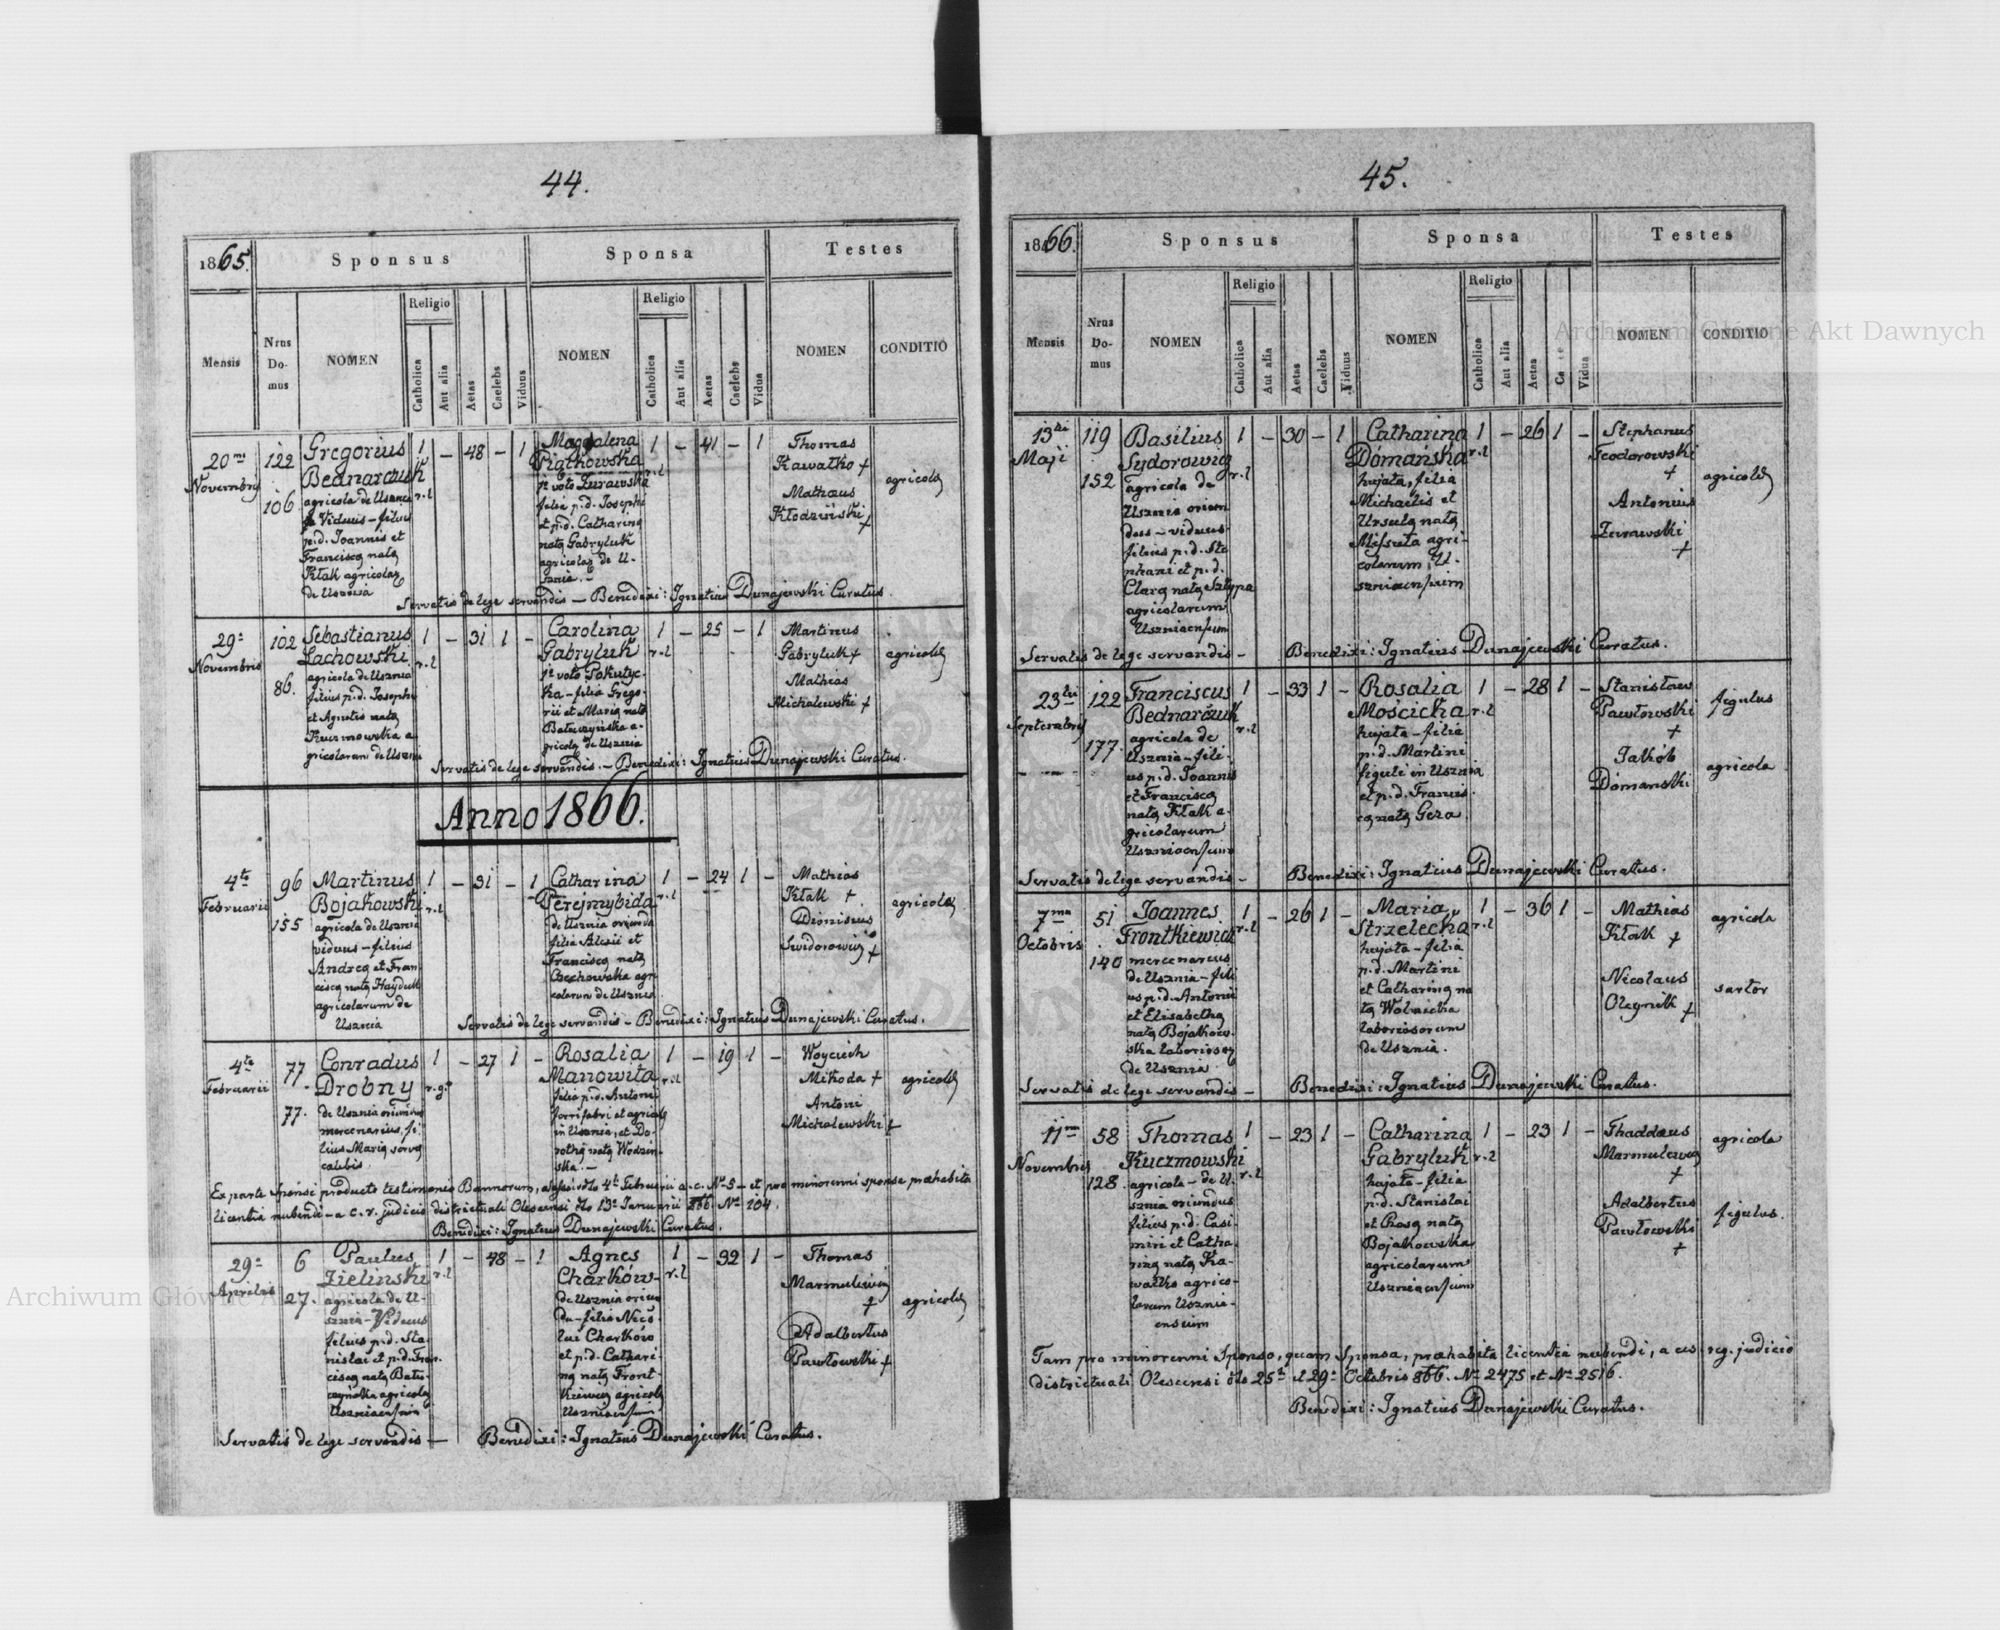 44.
1865.
Sponsus
Sponsa
Testes
Mensis
Nrus Domus
NOMEN
Religio
Catholica
Aut alia
Aetas
Caelebs
Viduus
NOMEN
Religio
Catholica
Aut alia
Aetas
Caelebs
Vidua
NOMEN
CONDITIO
20ma Novembris
122
106
Gregorius
Bednarczuk
agricola de Usznia
Viduus – filius
p.d. Joannis et
Francisca nata
Kłak agricolar
de Usznia
1 r.l
–
48
–
1
Magdalena
Piątkowska
1º voto Zurawska
filia p.d. Josephi
et p.d. Catharina
nata Gabryluk
agricolar de U-
sznia. –
1 r.l
–
41
–
1
Thomas
Kawałko +
Mathaus
Kłodziński +
agricola
Servatis de lege servandis – Benedixi: Ignatius Dunajewski Curatus.
29a Novembris
102
86.
Sebastianus
Lachowski
agricola de Usznia
filius p.d. Josephi
et Agnetis nata
Kuczmowska a-
gricolarum de Usznia
1 r.l
–
31
1
–
Carolina
Gabryluk
1º voto Pokutyc-
ka – filia Grego-
rii et Maria nata
Batuczyńska a-
gricola de Usznia
1 r.l
–
25
–
1
Martinus
Gabryluk +
Mathias
Michalewski +
agricola
Servatis de lege servandis. – Benedixi: Ignatius Dunajewski Curatus.
Anno 1866.
4ta Februarii
96
155
Martinus
Bojakowski
agricola de Usznia
viduus – filius
Andrea et Fran-
cisca nata Hayduk
agricolarum de
Usznia
1 r.l
–
31
–
1
Catharina
Perejmybida
de Usznia oriunda
filia Alexii et
Francisca nata
Czechowska agri-
colarum de Usznia
1 r.l
–
24
1
–
Mathias
Kłak +
Dionisius
Swidorowicz +
agricola
Servatis de lege servandis – Benedixi: Ignatius Dunajewski Curatus.
4ta Februarii
77
77.
Conradus
Drobny
de Usznia oriundus
mercenarius, fi-
lius Maria serva
calibis
1 r.g.
–
27
1
–
Rosalia
Manowita
filia p.d. Antoni
ferrifabri et agricola
in Usznia, et Do-
rothea nata Wodzin-
ska. –
1 r.l
–
19
1
–
Woyciech
Mikoda +
Antoni
Michalewski +
agricola
Ex parte Sponsi producto testimonio Bannorum, Februarii a.c. Nº 5 – et pro minorenni sponsa prahabita
licentia nubendi – a c.r. judicio districtuali Olescensi dto 13a Januarii 866. Nº 104.
Benedixi: Ignatius Dunajewski Curatus.
29a Aprilis
6
27.
Paulus
Zielinski
agricola de U-
sznia – Viduus
filius p.d. Sta-
nislai et p.d. Fran-
cisca nata Batu-
czynska agricola
Uszniaensium
1 r.l
–
48
–
1
Agnes
Charków-
de Usznia oriun-
da – filia Nico-
lai Charków
et p.d. Cathari-
na nata Front-
kiewicz agricola
Uszniaensium
1 r.l
–
32
1
–
Thomas
Marmulewicz
+
Adalbertus
Pawłowski +
agricola
Servatis de lege servandis —
Benedixi: Ignatius Dunajewski Curatus.
45.
1866.
Sponsus
Sponsa
Testes
Mensis
Nrus Domus
NOMEN
Religio
Catholica
Aut alia
Aetas
Caelebs
Viduus
NOMEN
Religio
Catholica
Aut alia
Aetas
Vidua
NOMEN
CONDITIO
13tia Maji
119
152
Basilius
Sydorowicz
agricola de
Usznia oriun-
dus – viduus
filius p.d. Ste-
phani et p.d.
Clara nata Sztypa
agricolarum
Uszniaensium
1 r.l
–
30
–
1
Catharina
Domańska
hujata, filia
Michaelis et
Ursula nata
Missuta agri-
colarum U-
szniaensium
1 r.l
–
26
1
–
Stephanus
Teodorowski
+
Antonius
Zurawski
+
agricola
Servatis de lege servandis –
Benedixi: Ignatius Dunajewski Curatus.
23tia Septembris
122
177.
Franciscus
Bednarczuk
agricola de
Usznia – fili-
us p.d. Joannis
et Francisca
nata Kłak a-
gricolarum
Uszniaensium
1 r.l
–
33
1
–
Rosalia
Mościcka
hujata – filia
p.d. Martini
figuli in Usznia
et p.d. Francis-
ca nata Geza.
1 r.l
–
28
1
–
Stanisław
Pawłowski
+
Jakób
Domanski
figulus
agricola
Servatis de lege servandis –
Benedixi: Ignatius Dunajewski Curatus.
7ma Octobris
51
140
Joannes
Frontkiewicz
mercenarius
de Usznia – fili-
us p.d. Antonii
et Elisabetha
nata Bojakow-
ska laboriosa
de Usznia
1 r.l
–
26
1
–
Maria
Strzelecka
hujata – filia
p.d. Martini
et Catharina na-
ta Wolanicka
laboriosorum
de Usznia.
1 r.l
–
36
1
–
Mathias
Kłak +
Nicolaus
Oleynik +
agricola
sartor
Servatis de lege servandis –
Benedixi: Ignatius Dunajewski Curatus.
11ma Novembris
58
128.
Thomas
Kuczmowski
agricola – de U-
sznia oriundus
filius p.d. Casi-
miri et Catha-
rina nata Ka-
wałko agrico-
larum Usznia-
ensium
1 r.l
–
23
1
–
Catharina
Gabryluk
hujata – filia
p.d. Stanislai
et Rosa nata
Bojakowska
agricolarum
Uszniaensium
1 r.l
–
23
1
–
Thaddaus
Marmulewicz
+
Adalbertus
Pawłowski
+
agricola
figulus.
Tam pro minorenni Sponso, quam Sponsa, prahabita licentia nubendi, a cas. reg. judicio
districtuali Olescensi dto 25a et 29a Octobris 866. Nº 2475 et Nº 2516.
Benedixi: Ignatius Dunajewski Curatus.
Archiwum Główne Akt Dawnych
Archiwum Główne Akt Dawnych